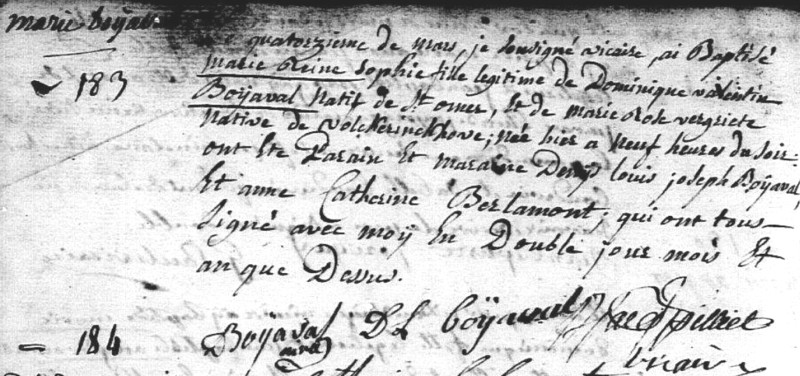 marie Boyav
183
Le quatorzieme de mars, je Sousigné vicaire, ai Baptisé
marie Reine Sophie fille legitime de Dominique valentin
Boÿaval natif de St omer, et de marie Rose vergriete
Native de volckerinckhove; née hier a neuf heures du soir;
ont Eté Parain Et maraine Denis louis joseph Boÿaval,
Et anne Catherine Berlamont; qui ont tous
signé avec moÿ En Double jour mois Et
an que Dessus.
Boÿaval DL boÿaval
184
vicaire